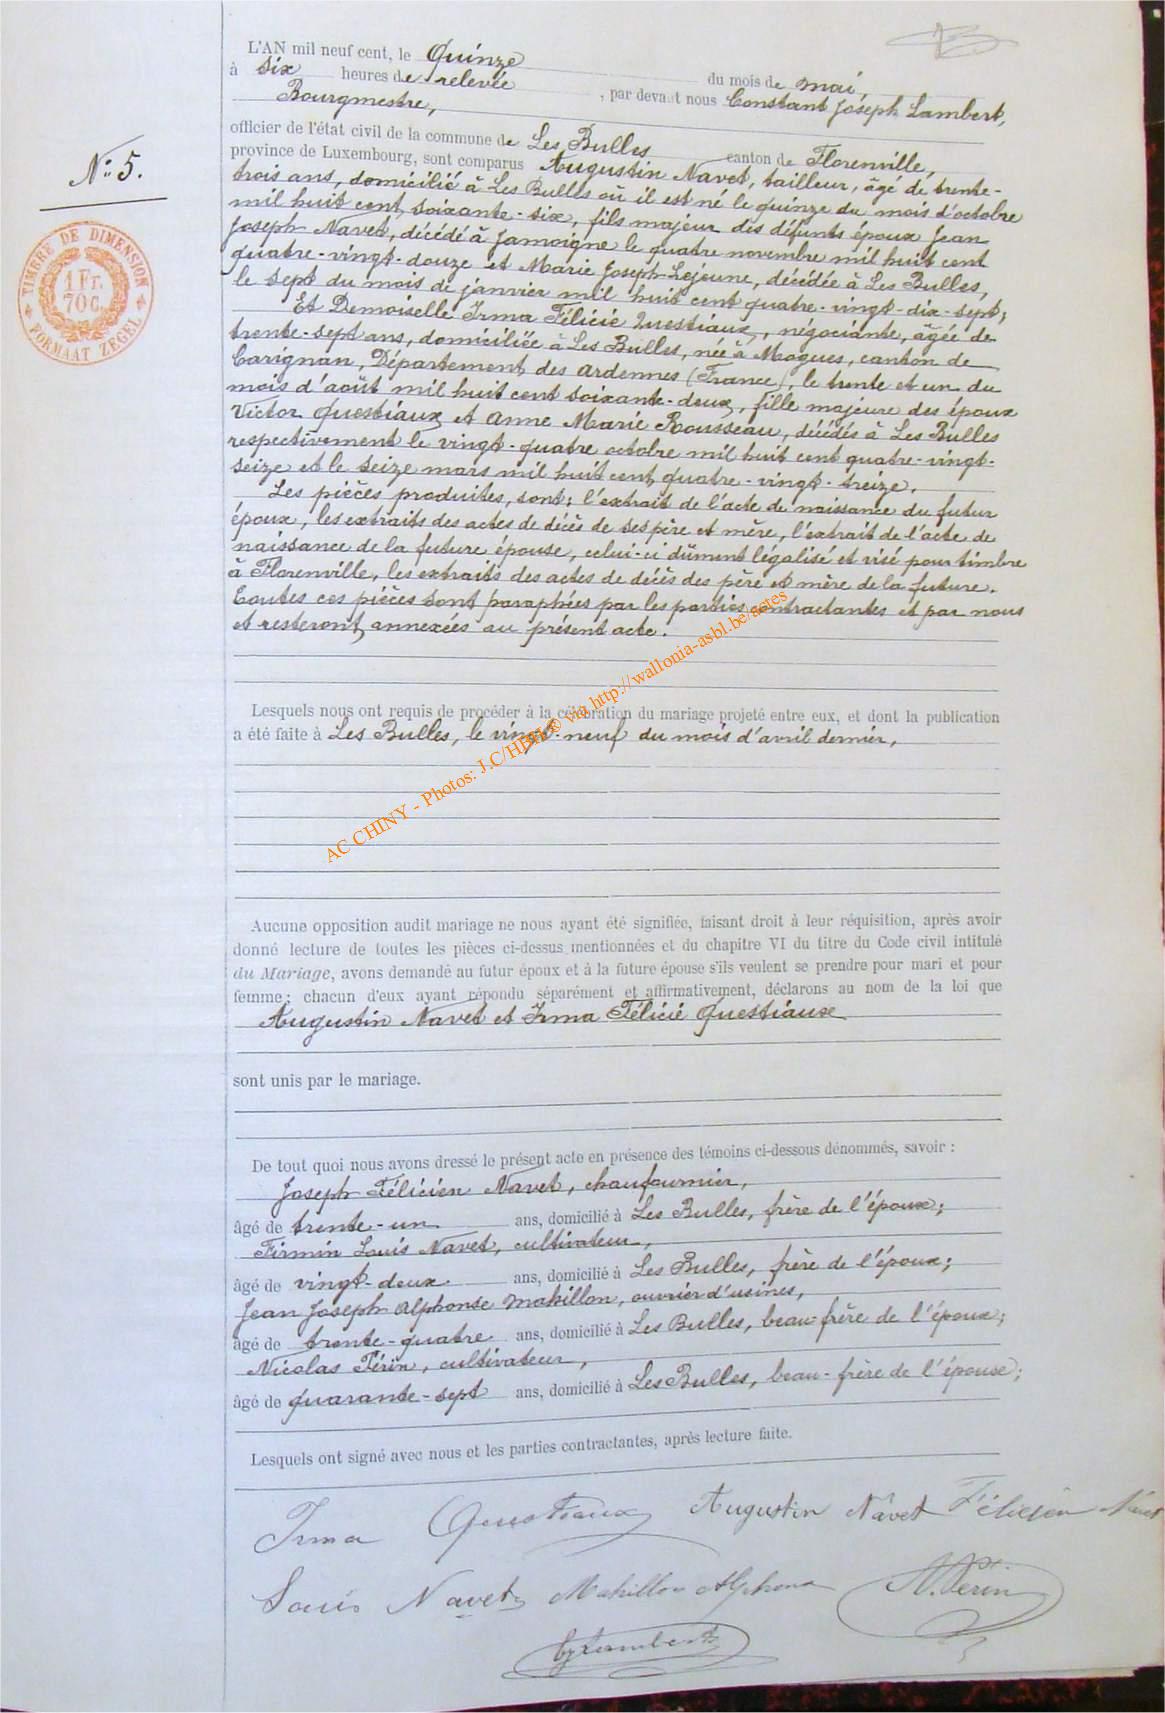 L'AN mil neuf cent, le Quinze du mois de mai,
à six heures de relevée, par devant nous Constant Joseph Lambert,
Bourgmestre,
officier de l'état civil de la commune de Les Bulles canton de Florenville,
province de Luxembourg, sont comparus Augustin Navet, tailleur, âgé de trente-
trois ans, domicilié à Les Bulles où il est né le quinze du mois d'octobre
mil huit cent soixante-six, fils majeur des défunts époux Jean
Joseph Navet, décédé à Jamoigne le quatre novembre mil huit cent
quatre-vingt-douze et Marie Joseph Lejeune, décédée à Les Bulles,
le sept du mois de janvier mil huit cent quatre-vingt-dix-sept;
Et Demoiselle Irma Félicie Questiaux, négociante, âgée de
trente-sept ans, domiciliée à Les Bulles, née à Mogues, canton de
Carignan, Département des Ardennes (France), le trente et un du
mois d'août mil huit cent soixante-deux, fille majeure des époux
Victor Questiaux et Anne Marie Rousseau, décédés à Les Bulles
respectivement le vingt-quatre octobre mil huit cent quatre-vingt-
seize et le seize mars mil huit cent quatre-vingt-treize.
Les pièces produites, sont: l'extrait de l'acte de naissance du futur
époux, les extraits des actes de décès de ses père et mère, l'extrait de l'acte de
naissance de la future épouse, celui-ci dûment légalisé et visé pour timbre
à Florenville, les extraits des actes de décès des père et mère de la future.
Toutes ces pièces sont paraphées par les parties contractantes et par nous
et resteront annexées au présent acte.
N° 5.
TIMBRE DE DIMENSION
1 Fr.
70 C.
FORMAAT ZEGEL
AC CHINY - Photos: J.C/HBH® via http://wallonia-asbl.be/actes
Lesquels nous ont requis de procéder à la célébration du mariage projeté entre eux, et dont la publication
a été faite à Les Bulles, le vingt-neuf du mois d'avril dernier,
Aucune opposition audit mariage ne nous ayant été signifiée, faisant droit à leur réquisition, après avoir
donné lecture de toutes les pièces ci-dessus mentionnées et du chapitre VI du titre du Code civil intitulé
du Mariage, avons demandé au futur époux et à la future épouse s'ils veulent se prendre pour mari et pour
femme; chacun d'eux ayant répondu séparément et affirmativement, déclarons au nom de la loi que
Augustin Navet et Irma Félicie Questiaux
sont unis par le mariage.
De tout quoi nous avons dressé le présent acte en présence des témoins ci-dessous dénommés, savoir :
Joseph Félicien Navet, chaufournier,
âgé de trente-un ans, domicilié à Les Bulles, frère de l'époux;
Firmin Louis Navet, cultivateur,
âgé de vingt-deux ans, domicilié à Les Bulles, frère de l'époux;
Jean Joseph Alphonse Mahillon, ouvrier d'usines,
âgé de trente-quatre ans, domicilié à Les Bulles, beau-frère de l'époux;
Nicolas Périn, cultivateur,
âgé de quarante-sept ans, domicilié à Les Bulles, beau-frère de l'épouse;
Lesquels ont signé avec nous et les parties contractantes, après lecture faite.
Irma Questiaux Augustin Navet Félicien Navet
Louis Navet Mahillon Alphonse N. Périn
CJ Lambert